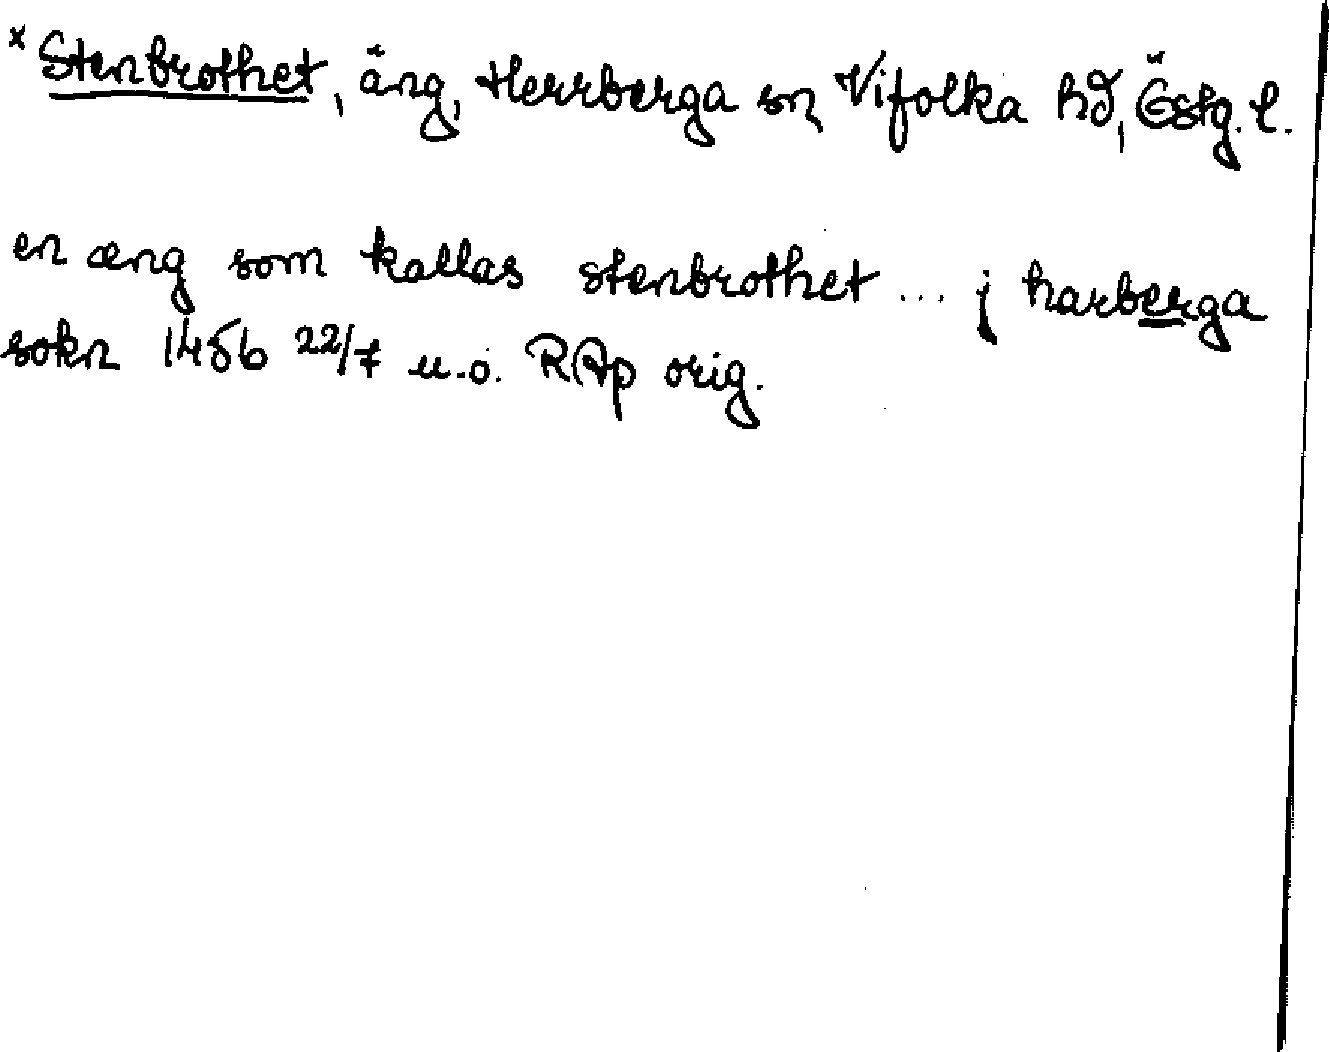 × Stenbrothet, äng, Herrberga sn, Vifolka hd, Östg. l.
en æng som kallas stenbrothet ... j harberga
sokn 1456 22/7 u.o. RAp orig.